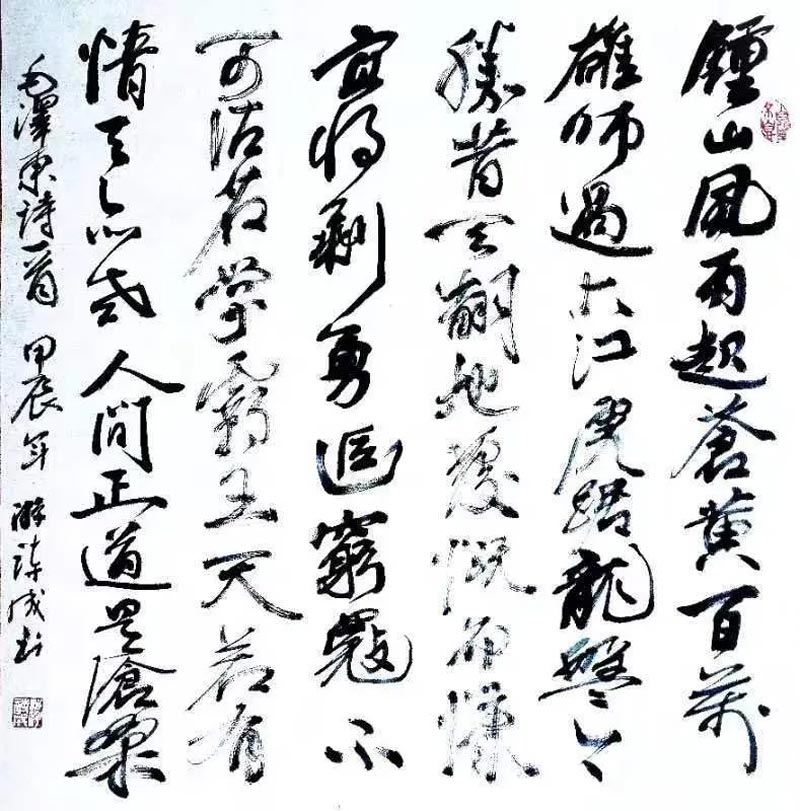 鍾山風雨起蒼黃百萬
雄師過大江虎踞龍盤今
勝昔天翻地覆慨而慷
宜將剩勇追窮寇不
可沽名學霸王天若有
情天亦老人間正道是滄桑
毛澤東詩一首 甲辰年 游